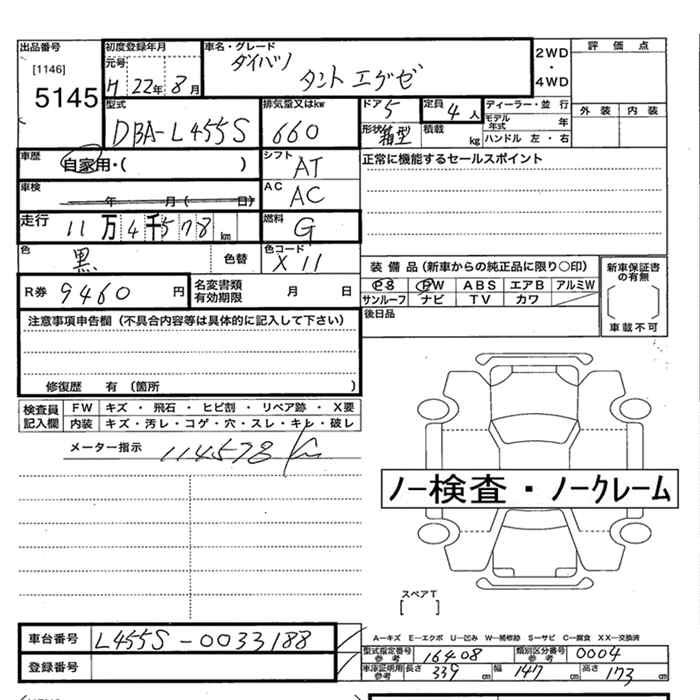 出品番号 初度登録年月 車名・グレード 2WD・4WD 評価点
[1146] 元号 ダイハツ
5145 H 22年 8月 タント エグゼ
型式 排気量又はkw ドア 5 定員 4人 ディーラー・並行 外装 内装
DBA-L455S 660 形状 箱型 積載 kg モデル年式 年
ハンドル 左・右
車歴 自家用・( ) シフト AT 正常に機能するセールスポイント
車検 年 月( 日) AC AC
走行 11万4千578km 燃料 G
色 黒 色替 色コード X11
装備品(新車からの純正品に限り○印) 新車保証書の有無
R券 9460円 名変書類有効期限 月 日 PS PW ABS エアB アルミW
サンルーフ ナビ TV カワ
注意事項申告欄(不具合内容等は具体的に記入して下さい) 後日品 車載不可
修復歴 有(箇所 )
検査員記入欄 FW キズ・飛石・ヒビ割・リペア跡・X要
内装 キズ・汚レ・コゲ・穴・スレ・キレ・破レ
メーター指示 114578km
ノー検査・ノークレーム
スペアT
[ ]
車台番号 L455S-0033188
A―キズ E―エクボ U―凹み W―補修跡 S―サビ C―腐食 XX―交換済
登録番号 型式指定番号参考 16408 類別区分番号参考 0004
車庫証明用参考 長さ 339cm 幅 147cm 高さ 173cm